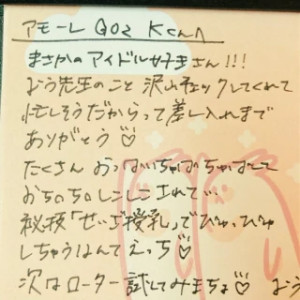 アモーレ Q02 Kさんへ
まさかのアイドル好きさん!!!
おう先生のこと 沢山チェックしてくれて
忙しそうだからって差し入れまで
ありがとう♡
たくさん おっぱいちゅぱちゅぱして
おちのちのしこしこされて…
秘技「せいざ授乳」でぴゅっぴゅ
しちゃうなんてえっち♡
次はローター試してみまちょ♡ おう